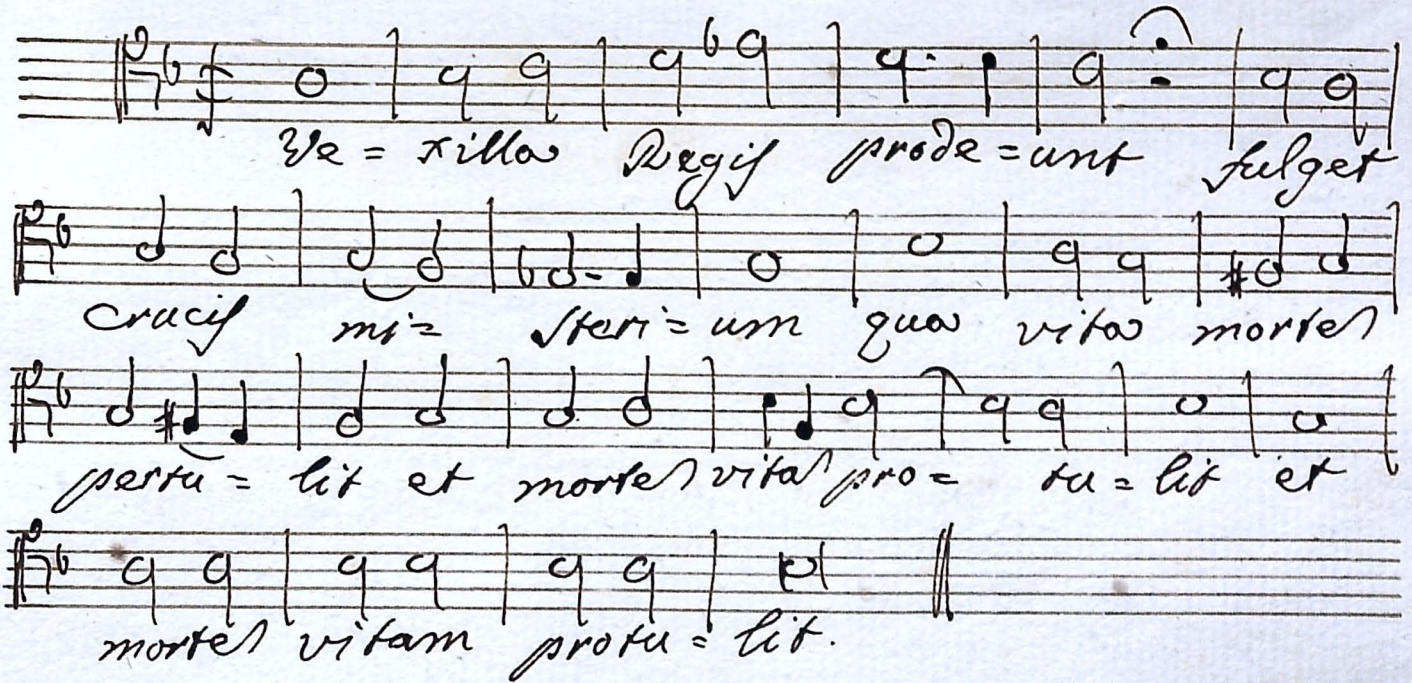 Ve = xilla Regis prode = unt fulget
crucis mi = steri = um qua vita mortem
pertu = lit et mortem vita pro = tu = lit et
mortem vitam protu = lit.